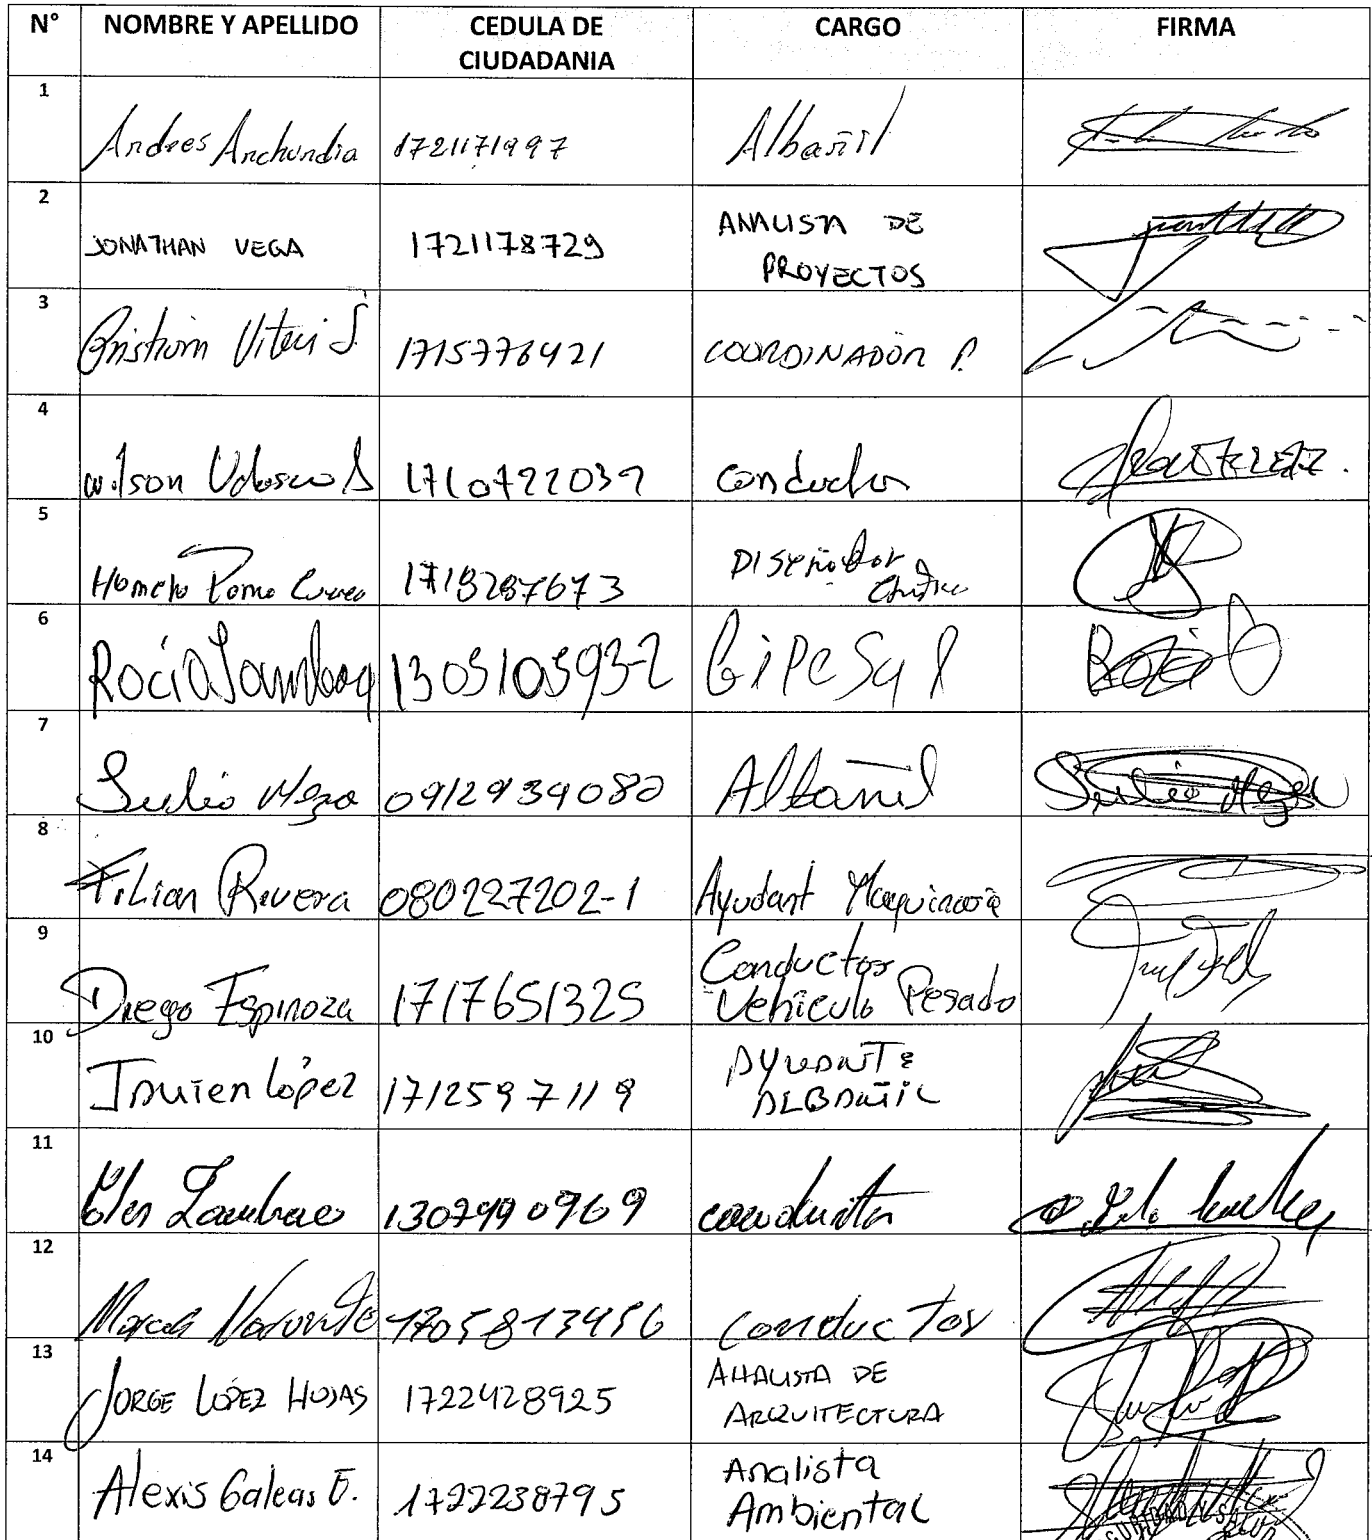 N° NOMBRE Y APELLIDO CEDULA DE CIUDADANIA CARGO FIRMA
1 Andres Anchundia 1721171997 Albañil
2 JONATHAN VEGA 1721178729 ANALISTA DE PROYECTOS
3 Cristian Viteri S. 1715776421 COORDINADOR P.
4 Wilson Velasco S 1710722039 conductor
5 Homero 1718287673 Diseñador
6 Rocio 130510593-2
7 Julio Meza 0912934080 Albañil Julio Meza
8 Filian Rivera 080227202-1 Ayudant Maquinaria
9 Diego Espinoza 1717651325 Conductor Vehiculo Pesado
10 Javier López 1712597119 AYUDANTE ALBAÑIL
11 Zambrano 1307990969 conductor
12 1705813456 Conductor
13 JORGE LÓPEZ HOJAS 1722428925 ANALISTA DE ARQUITECTURA
14 Alexis Galeas E. 1722238795 Analista Ambiental